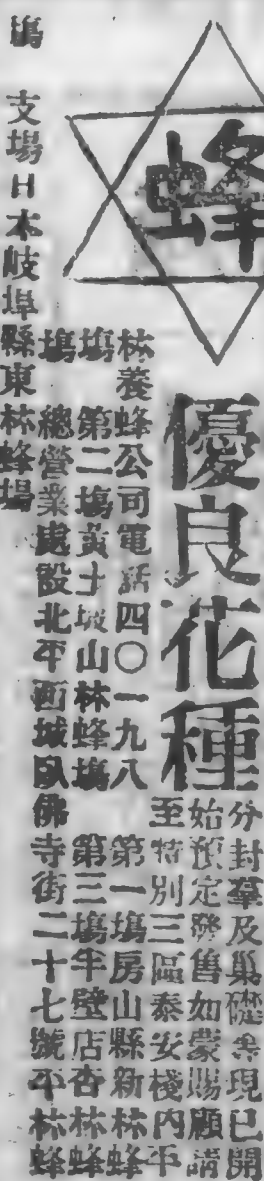 蜂
優良花種
分封羣及巢礎等現已開
始預定發售如蒙賜顧請
至特別三區泰安棧內平
林養蜂公司電話四〇一九八
第一塲房山縣新林蜂
塲 第二塲黃土坡山林蜂塲
第三塲半壁店杏林蜂
塲 總營業處設北平西城臥佛寺街二十七號平林蜂
塲 支塲日本岐埠縣東林蜂塲